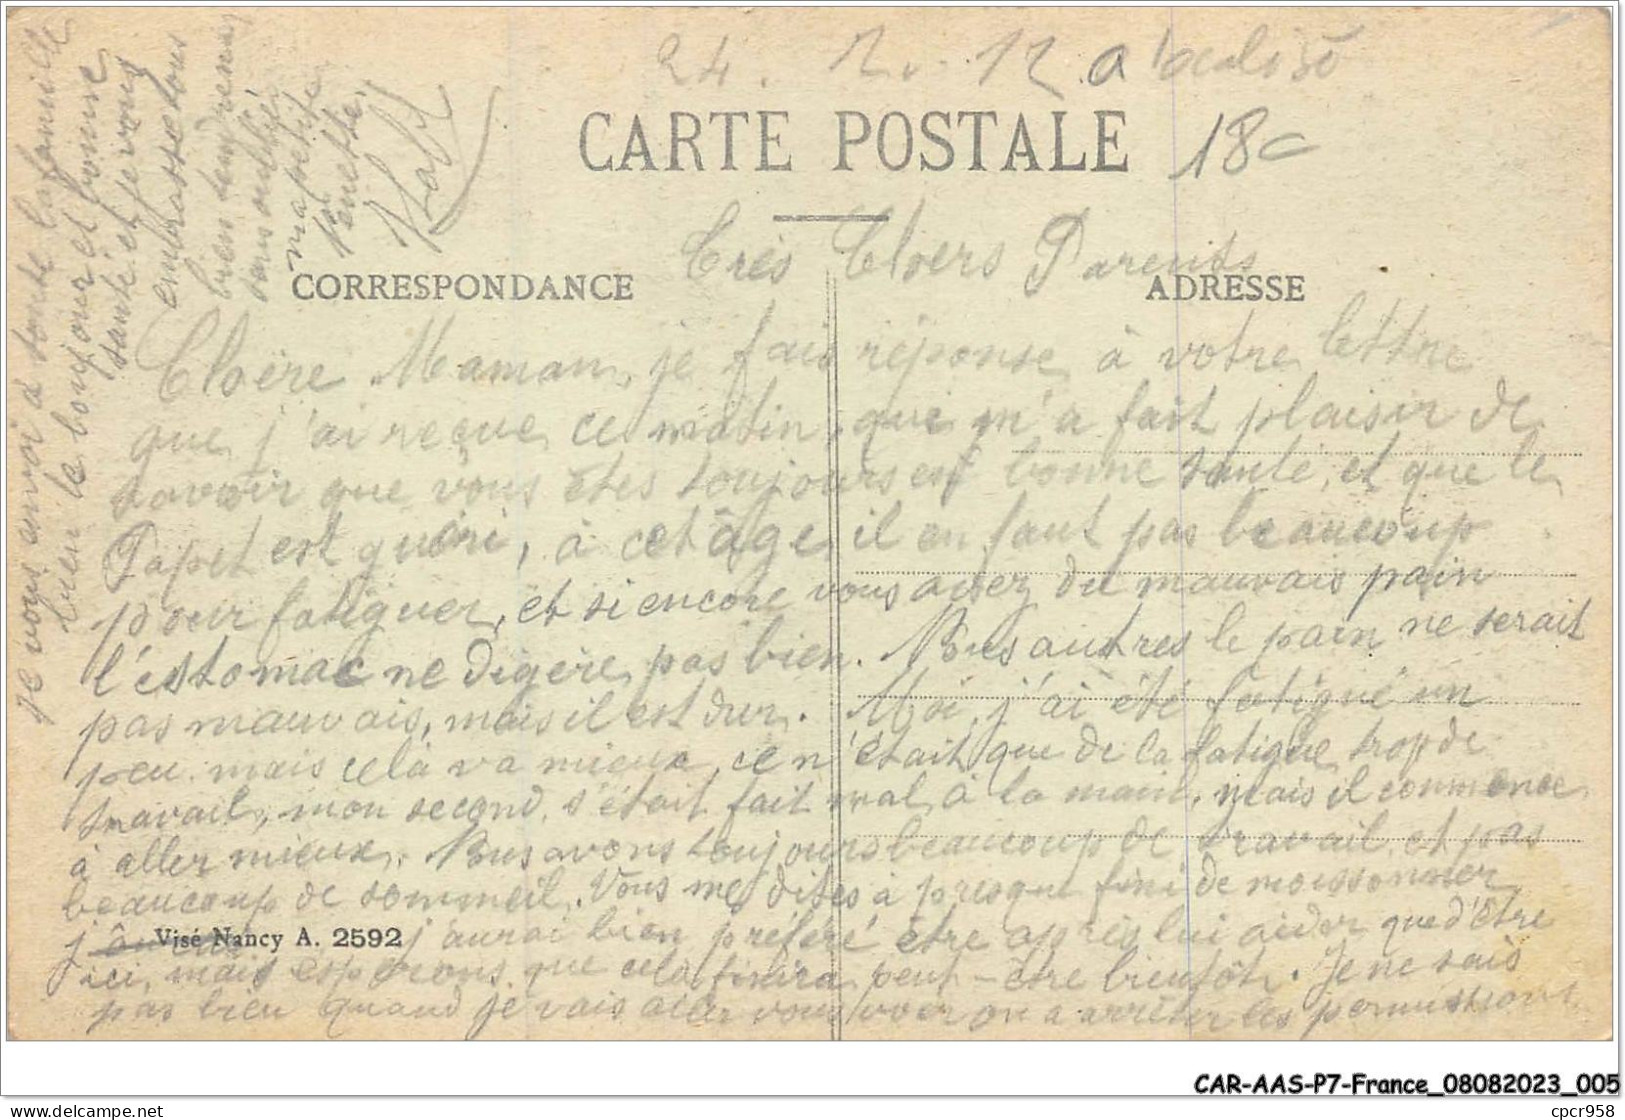 24.
CARTE POSTALE
18c
Très Chers Parents
CORRESPONDANCE
ADRESSE
Chère Maman, je fais réponse à votre lettre
que j'ai reçue ce matin, que m'a fait plaisir de
savoir que vous êtes toujours en bonne santé, et que le
Papet est guéri, à cet âge il en faut pas beaucoup
pour fatiguer, et si encore vous avez du mauvais pain
l'estomac ne digère pas bien. Nus autres le pain ne serait
pas mauvais, mais il est dur. Moi, j'ai été fatigué un
peu mais celà va mieux, ce n'était que de la fatigue, trop de
travail, mon second s'était fait mal à la main, mais il commence
à aller mieux. Nus avons toujours beaucoup de travail et pas
beaucoup de sommeil. Vous me dites à presque fini de moissonner
j'aurai bien préféré être après lui aider que d'être
Visé Nancy A. 2592
ici, mais esperons que cela finira peut-être bientôt. Je ne sais
pas bien quand je vais aller vous voir on a arrêter les permissions
Je vous anvoi à toute la famille
bien le bonjour et bonne
santé et je vous
embrasse tous
bien tendrement
sans oublier
ma petite